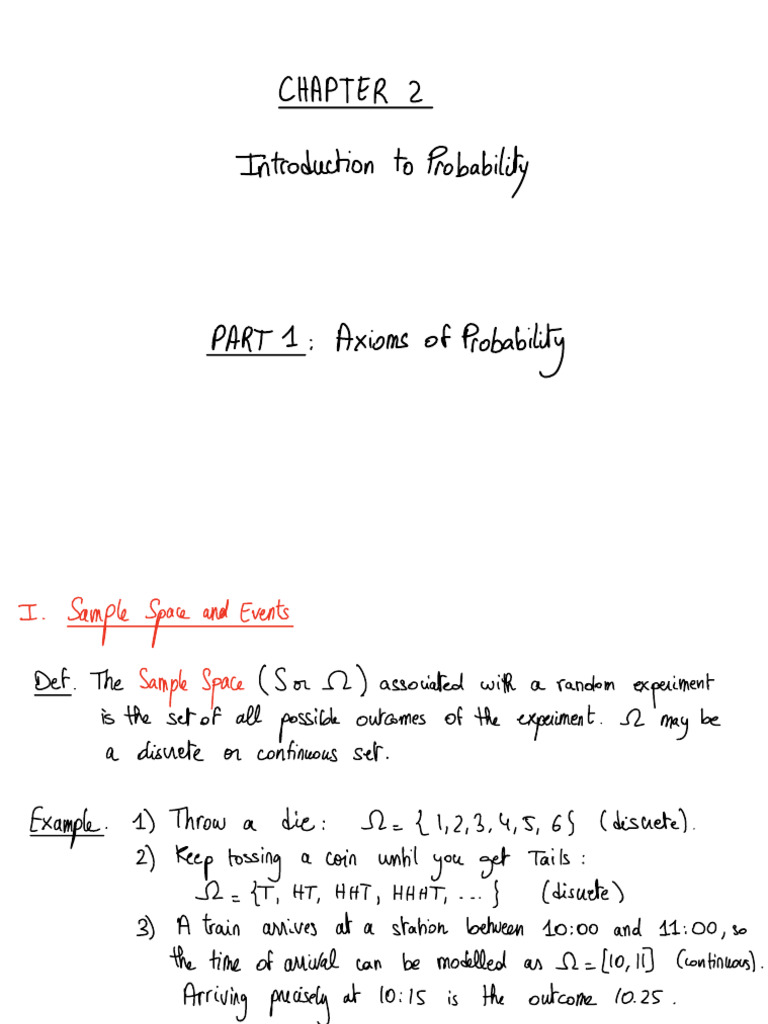 CHAPTER 2
Introduction to Probability
PART 1: Axioms of Probability
I. Sample Space and Events
Def. The Sample Space (S or Ω) associated with a random experiment
is the set of all possible outcomes of the experiment. Ω may be
a discrete or continuous set.
Example. 1) Throw a die: Ω = {1,2,3,4,5,6} (discrete).
2) Keep tossing a coin until you get Tails:
Ω = {T, HT, HHT, HHHT, ...} (discrete)
3) A train arrives at a station between 10:00 and 11:00, so
the time of arrival can be modelled as Ω = [10,11] (continuous).
Arriving precisely at 10:15 is the outcome 10.25.